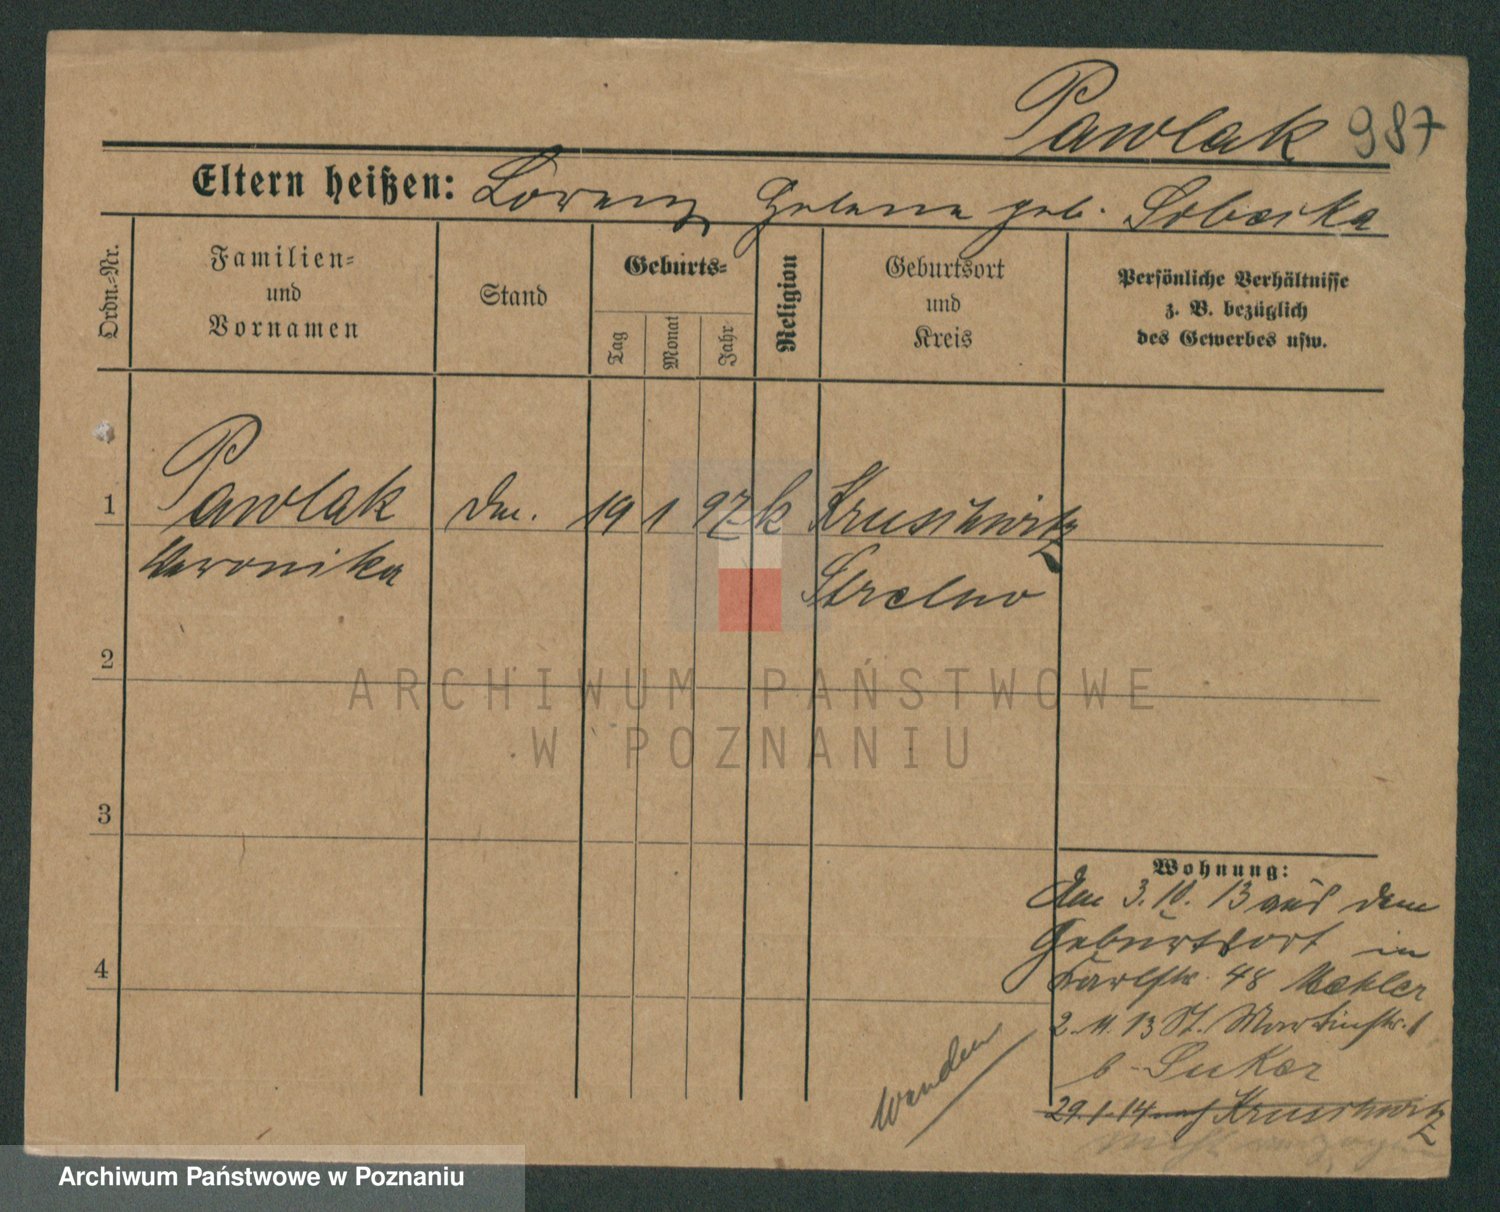 Pawlak 987
Eltern heißen: Lorenz Helena geb. Sobecka
Ordn.-Nr.
Familien-
und
Vornamen
Stand
Geburts-
Tag
Monat
Jahr
Religion
Geburtsort
und
Kreis
Persönliche Verhältnisse
z. B. bezüglich
des Gewerbes usw.
1
Pawlak
Veronika
19 1 97 k
Kruschwitz
Strelno
2
3
4
Wohnung:
Am 3.10.13 aus dem
Geburtsort in
Karlstr. 48 Maekler
2.11.13 St. Martinstr.
b.
29.1.14 nach Kruschwitz
nicht verzogen
Wenden
ARCHIWUM PAŃSTWOWE
W POZNANIU
Archiwum Państwowe w Poznaniu